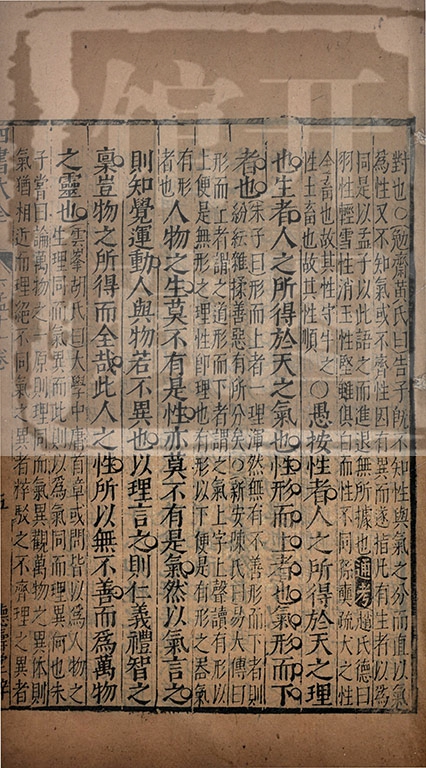 對也○勉齋黃氏曰告子既不知性與氣之分而直以氣
為性又不知氣或不齊性因有異而遂指凡有生者以為
同是以孟子以此語之而進退無所據也通考趙氏德曰
羽性輕雪性消玉性堅雖俱白而性不同除
犬之性
今畜也故其性守牛之
性土畜也故其性順
○愚按性者人之所得於天之理
也生者人之所得於天之氣也性形而上者也氣形而下
者也
朱子曰形而上者一理渾然無有不善形而下者則
紛紜雜揉善惡有所分矣○新安陳氏曰易大傳曰
形而上者謂之道形而下者謂之氣上字上聲讀有形以
上便是無形之理性即理也有形以下便是有形之器氣
有形
者也
人物之生莫不有是性亦莫不有是氣然以氣言之
則知覺運動人與物若不異也以理言之則仁義禮智之
稟豈物之所得而全哉此人之性所以無不善而為萬物
之靈也
雲峯胡氏曰大學中庸首章或問皆以為人物之
生理同而氣異而此則以為氣同而理異何也朱
子嘗曰論萬物之一原則理同而氣異觀萬物之異體則
氣猶相近而理絕不同氣之異者粹駁之不齊理之異者
四書大全
五